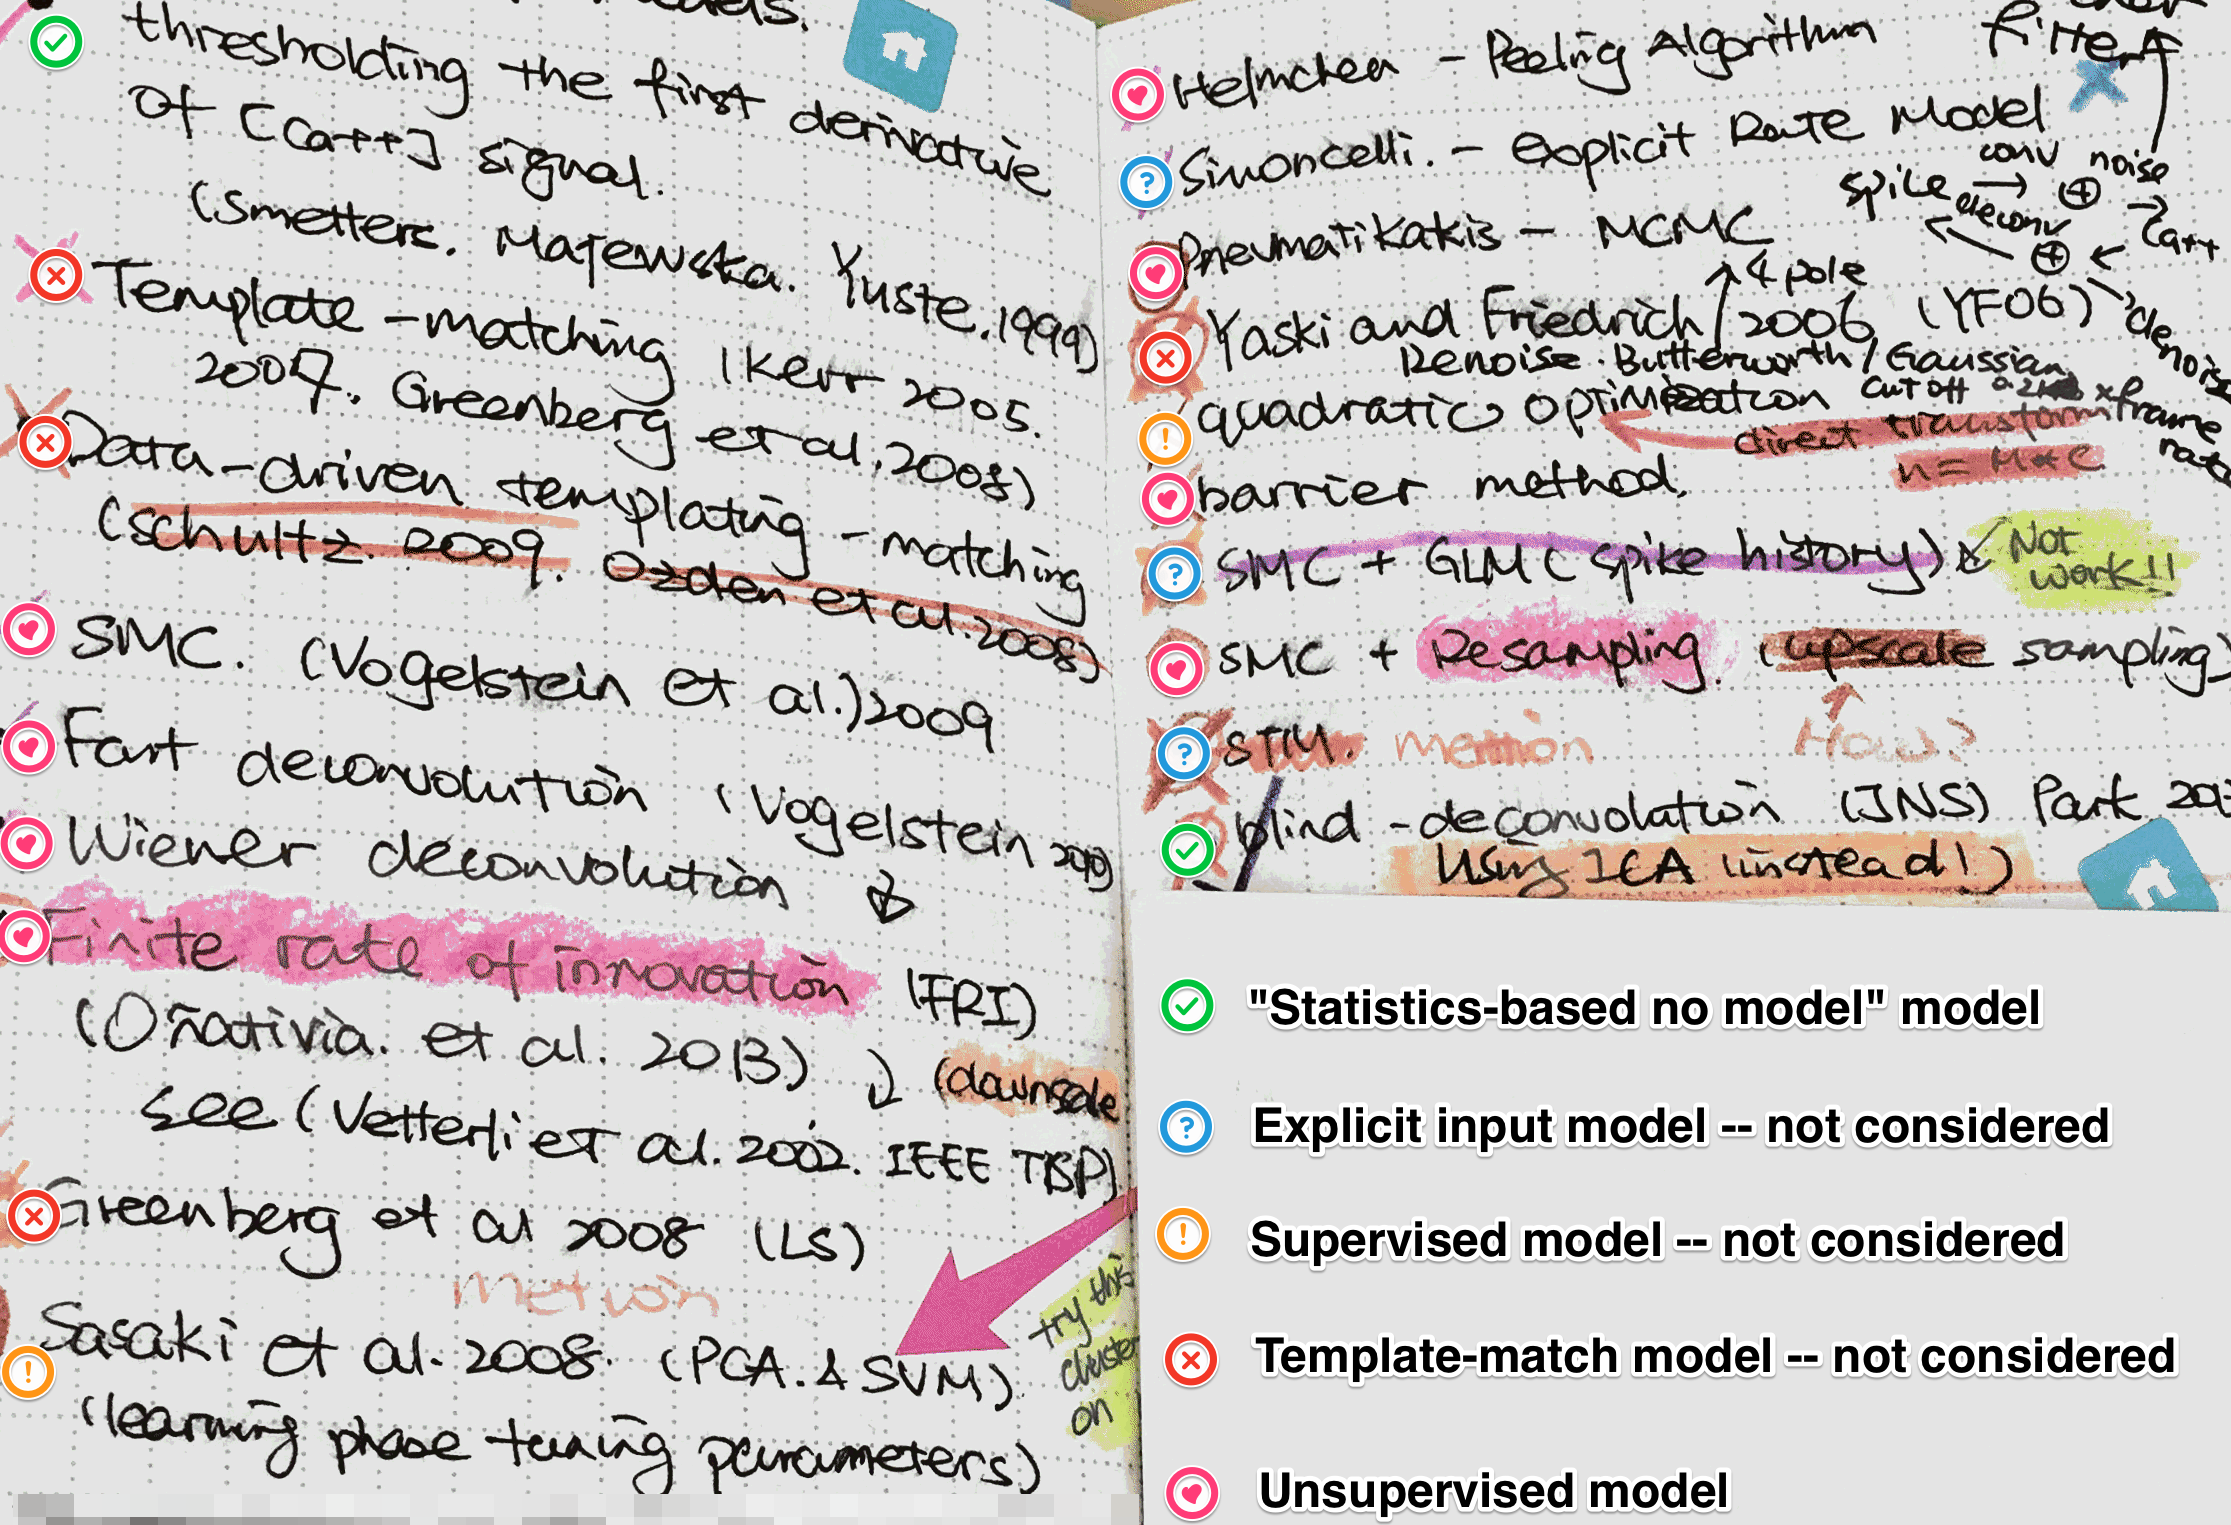 thresholding the first derivative
of [Ca++] signal.
(Smetters. Majewska. Yuste. 1999)
Template-matching (Kerr 2005.
2007. Greenberg et al. 2008)
Data-driven templating-matching
(Schultz. 2009. Ozden et al. 2008)
SMC. (Vogelstein et al.) 2009
Fast deconvolution (Vogelstein 2010)
Wiener deconvolution
Finite rate of innovation (FRI)
(Oñativia. et al. 2013) (downscale
see (Vetterli et al. 2002. IEEE TSP)
Greenberg et al 2008 (LS)
Mention
Sasaki et al. 2008. (PCA. & SVM)
(learning phase tuning parameters)
try this
cluster
on
filter
Helmchen - Peeling Algorithm
Simoncelli. - Explicit Rate Model
conv noise
spike → ⊕ → Ca++
deconv ⊕
denoise
Pneumatikakis - MCMC
4 pole
Yaski and Friedrich 2006 (YF06)
Denoise. Butterworth/Gaussian
cutoff 0.2 x frame rate
quadratic optimization
direct transform
n = M * C
barrier method.
SMC + GLM (spike history) Not
work!!
SMC + Resampling. (upscale sampling)
How?
STM. mention
blind-deconvolution (JNS) Park
Using ICA instead!)
"Statistics-based no model" model
Explicit input model -- not considered
Supervised model -- not considered
Template-match model -- not considered
Unsupervised model